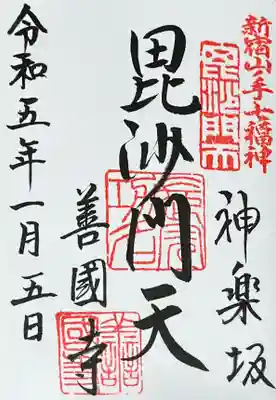 新宿山ノ手七福神
神楽坂
毘沙門天
善國寺
令和五年一月五日